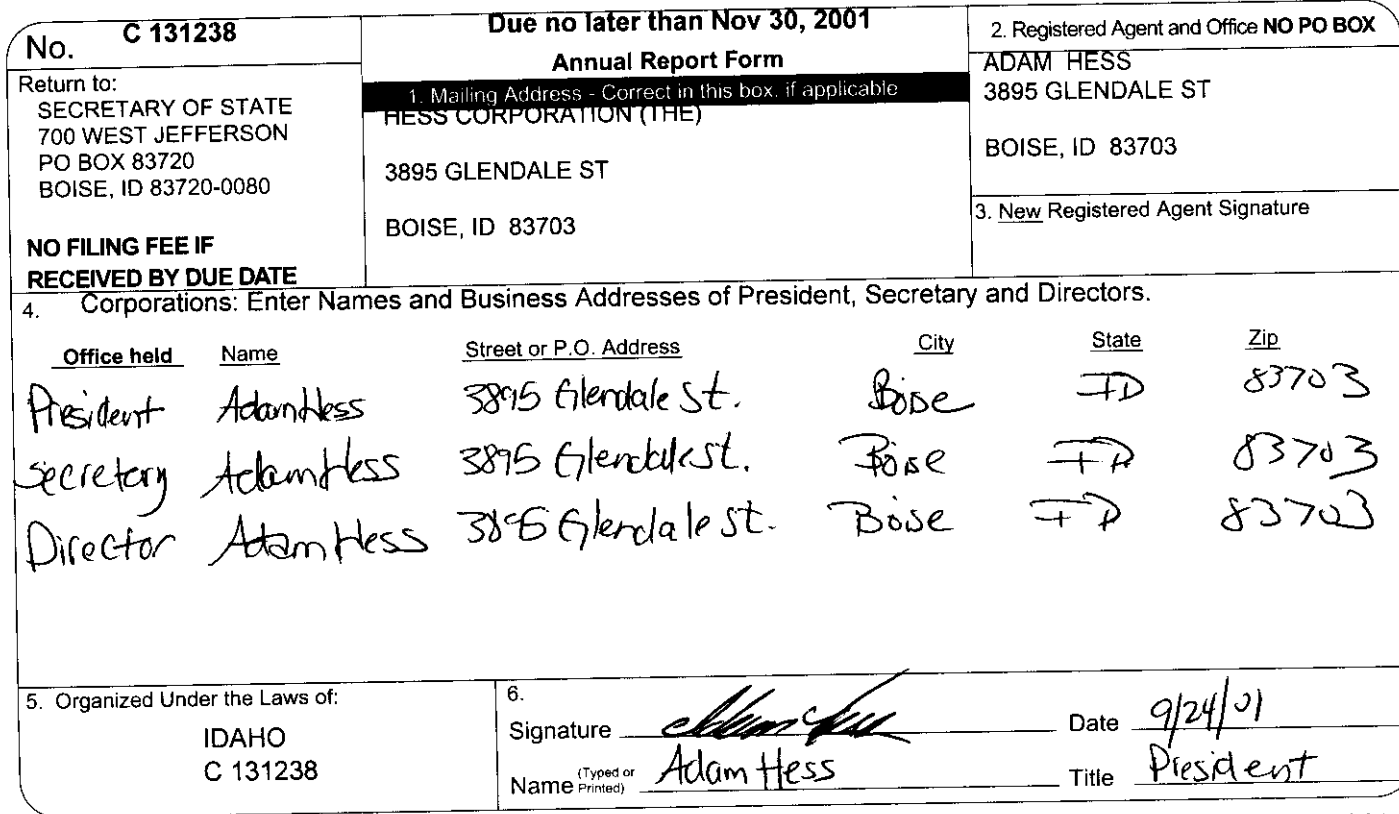 No. C 131238
Return to:
SECRETARY OF STATE
700 WEST JEFFERSON
PO BOX 83720
BOISE, ID 83720-0080
NO FILING FEE IF
RECEIVED BY DUE DATE
Due no later than Nov 30, 2001
Annual Report Form
1. Mailing Address - Correct in this box, if applicable
HESS CORPORATION (THE)
3895 GLENDALE ST
BOISE, ID 83703
2. Registered Agent and Office NO PO BOX
ADAM HESS
3895 GLENDALE ST
BOISE, ID 83703
3. New Registered Agent Signature
4. Corporations: Enter Names and Business Addresses of President, Secretary and Directors.
Office held Name Street or P.O. Address City State Zip
President Adam Hess 3895 Glendale St. Boise ID 83703
Secretary Adam Hess 3895 Glendale St. Boise ID 83703
Director Adam Hess 3895 Glendale St. Boise ID 83703
5. Organized Under the Laws of:
IDAHO
C 131238
6.
Signature Adam Hess Date 9/24/01
Name (Typed or Printed) Adam Hess Title President